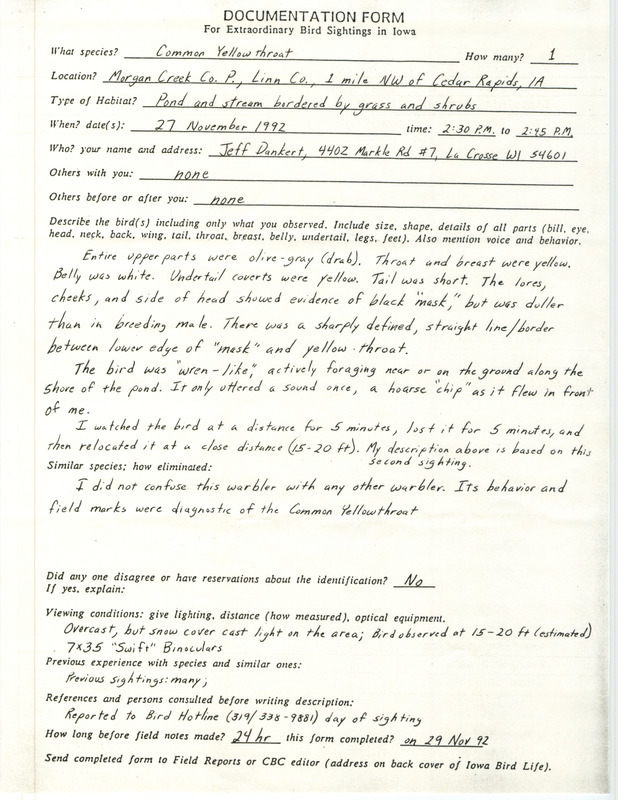 DOCUMENTATION FORM
For Extraordinary Bird Sightings in Iowa
What species? Common Yellowthroat How many? 1
Location? Morgan Creek Co. P., Linn Co., 1 mile NW of Cedar Rapids, IA
Type of Habitat? Pond and stream bordered by grass and shrubs
When? date(s): 27 November 1992 time: 2:30 P.M. to 2:45 P.M.
Who? your name and address: Jeff Dankert, 4402 Markle Rd #7, La Crosse WI 54601
Others with you: none
Others before or after you: none
Describe the bird(s) including only what you observed. Include size, shape, details of all parts (bill, eye,
head, neck, back, wing, tail, throat, breast, belly, undertail, legs, feet). Also mention voice and behavior.
Entire upperparts were olive-gray (drab). Throat and breast were yellow.
Belly was white. Undertail coverts were yellow. Tail was short. The lores,
cheeks, and side of head showed evidence of black "mask," but was duller
than in breeding male. There was a sharply defined, straight line/border
between lower edge of "mask" and yellow throat.
The bird was "wren-like," actively foraging near or on the ground along the
shore of the pond. It only uttered a sound once, a hoarse "chip" as it flew in front
of me.
I watched the bird at a distance for 5 minutes, lost it for 5 minutes, and
then relocated it at a close distance (15-20 ft). My description above is based on this
second sighting.
Similar species; how eliminated:
I did not confuse this warbler with any other warbler. Its behavior and
field marks were diagnostic of the Common Yellowthroat
Did any one disagree or have reservations about the identification? No
If yes, explain:
Viewing conditions: give lighting, distance (how measured), optical equipment.
Overcast, but snow cover cast light on the area; Bird observed at 15-20 ft (estimated)
7x35 "Swift" Binoculars
Previous experience with species and similar ones:
Previous sightings: many;
References and persons consulted before writing description:
Reported to Bird Hotline (319/338-9881) day of sighting
How long before field notes made? 24 hr this form completed? on 29 Nov 92
Send completed form to Field Reports or CBC editor (address on back cover of Iowa Bird Life).